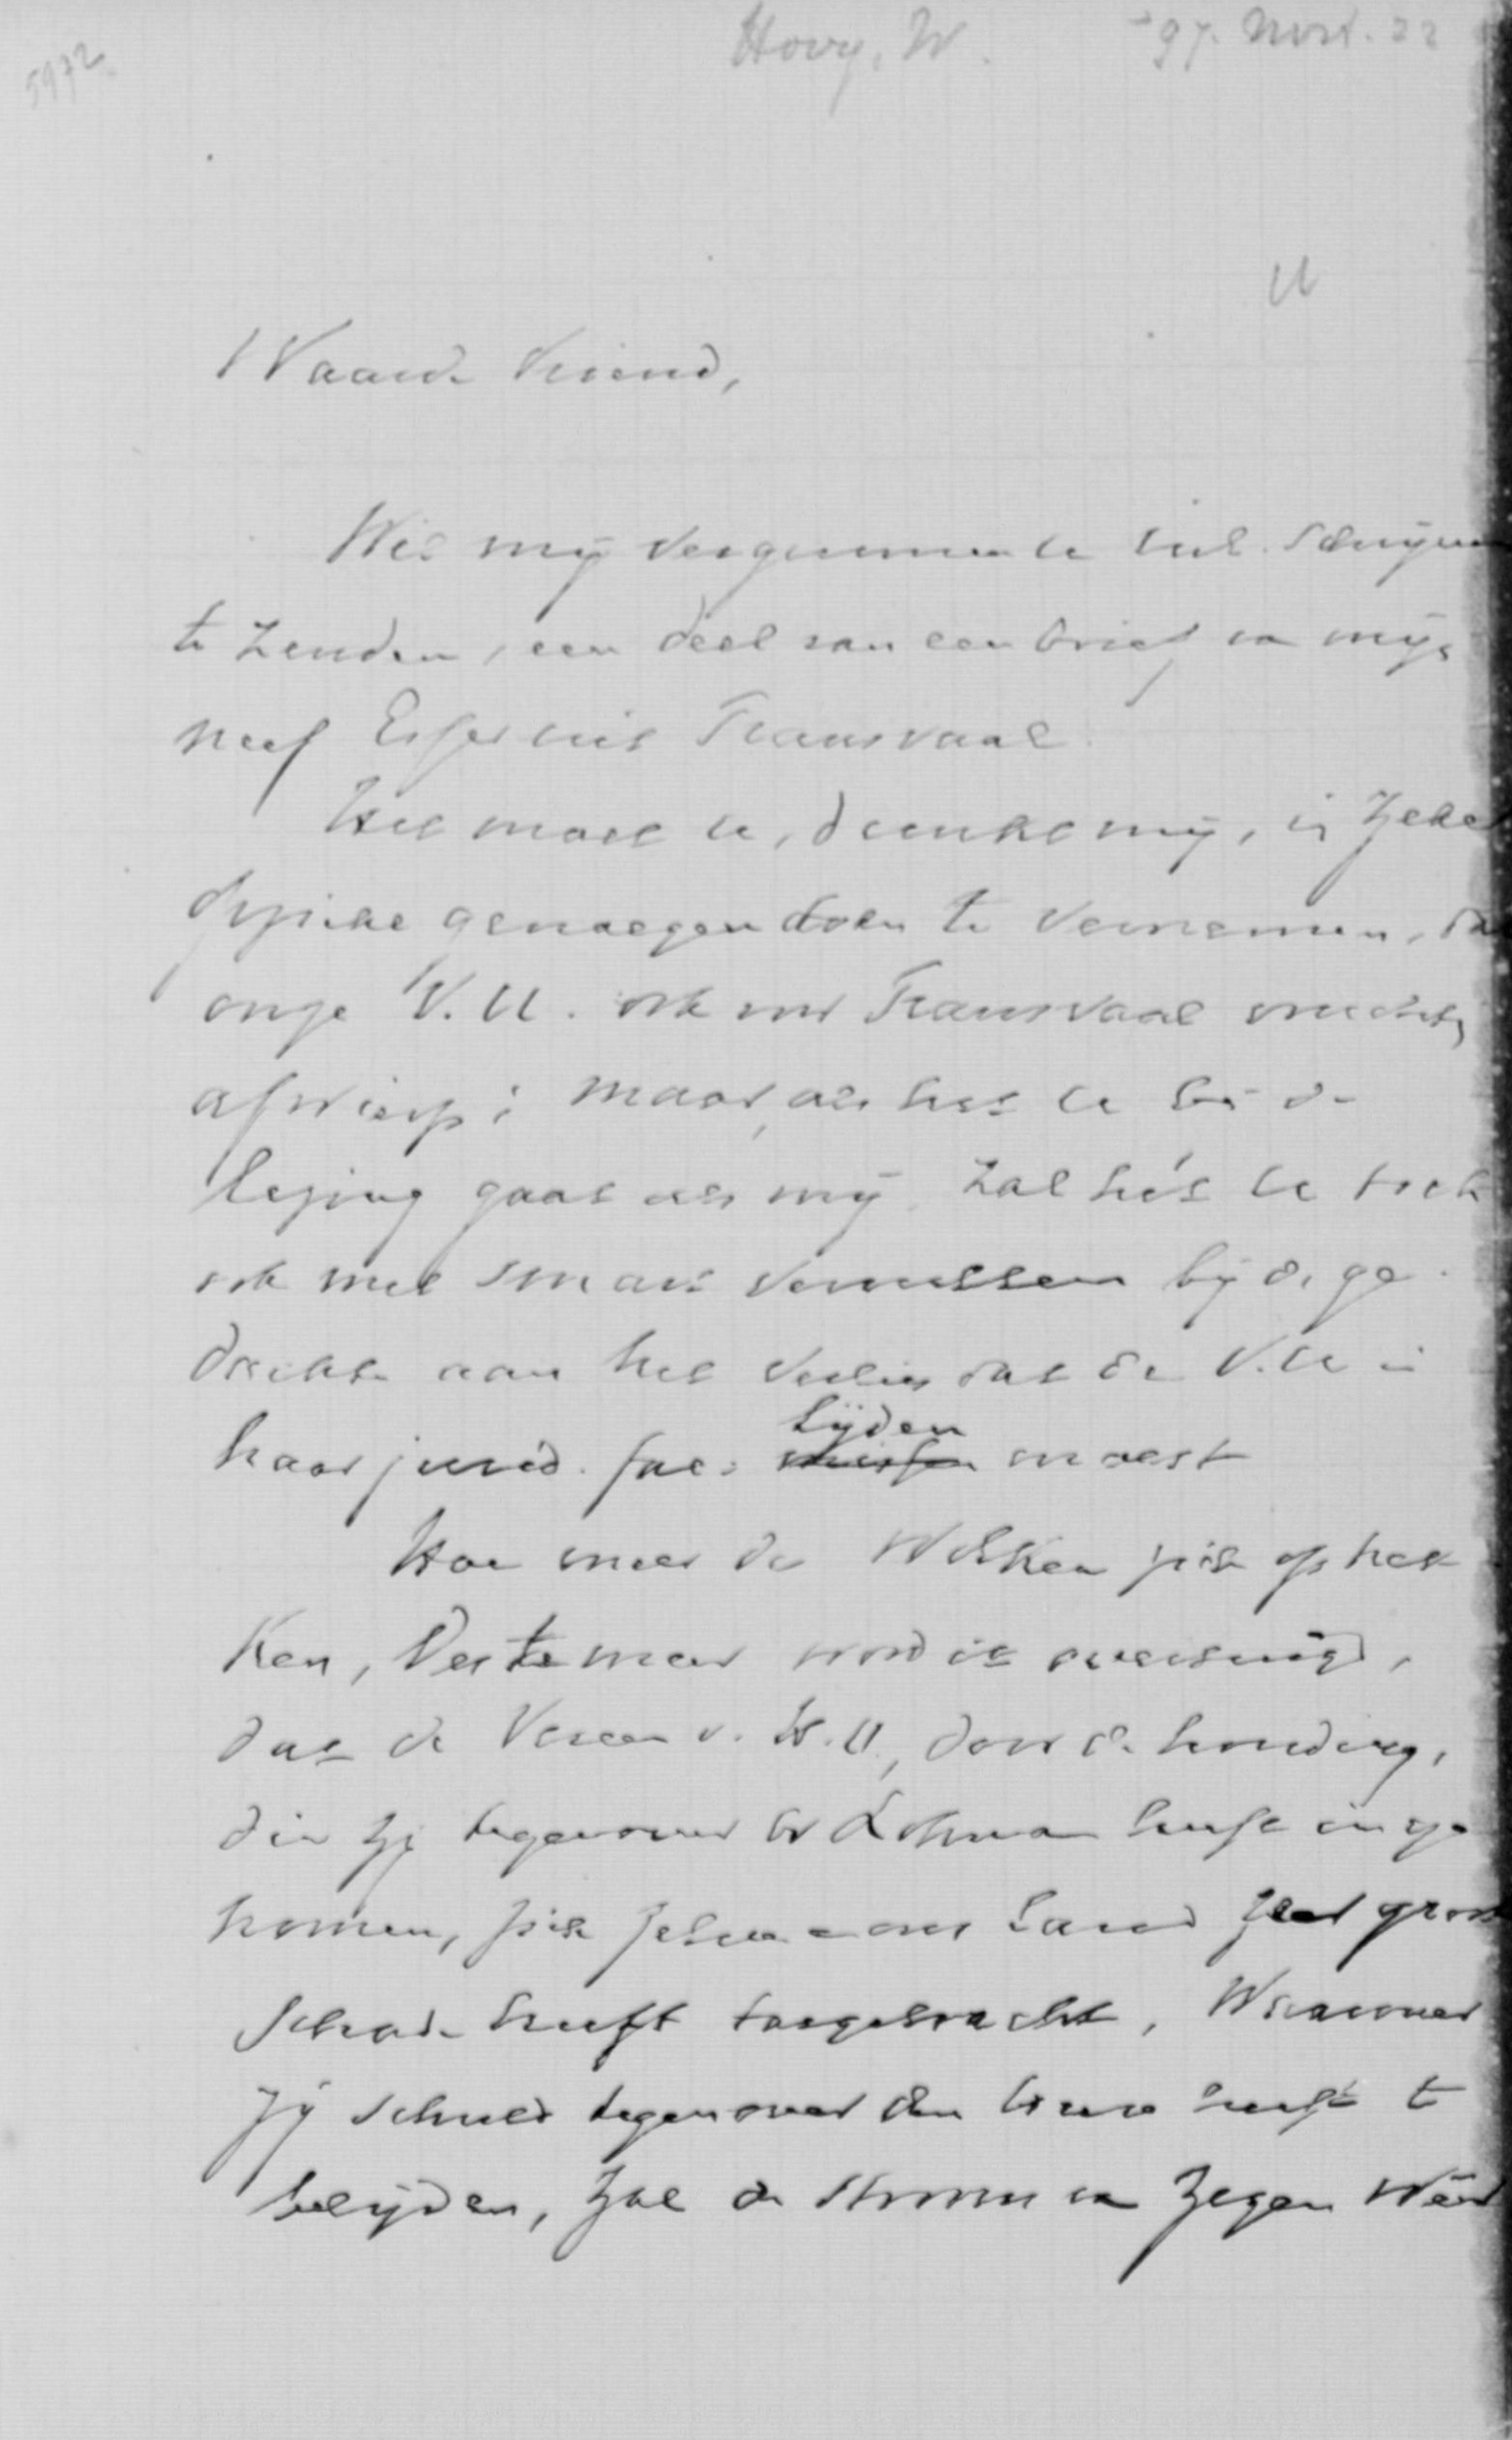 5972
Hovy, W. '97. Mrt. 22
U
Waarde Vriend,
Wil mij vergunnen U incl. schrijven
te zenden, een deel van een brief van mijn
neef Esser uit Transvaal.
Het moet U, dunkt mij, in zeker
opzicht genoegen doen te vernemen, dat
onze V.U. ook voor Transvaal vruchten
afwierp; maar, als het U bij de
lezing gaat als mij, zal het U toch
ook met smart vervullen bij de ge-
dachte aan het verlies dat de V.U. in
haar jurid. fac. lijden moest
Hoe meer de wolken zich ophel-
len, des te meer word ik overtuigd,
dat de Vereen. v. H.O., door de houding,
die zij tegenover Lohman heeft inge-
nomen, zich zelven en ons land zeer groote
schade heeft toegebracht, Waarover
zij schuld tegenover den Heere heeft te
belijden, zal de stroom van zegen